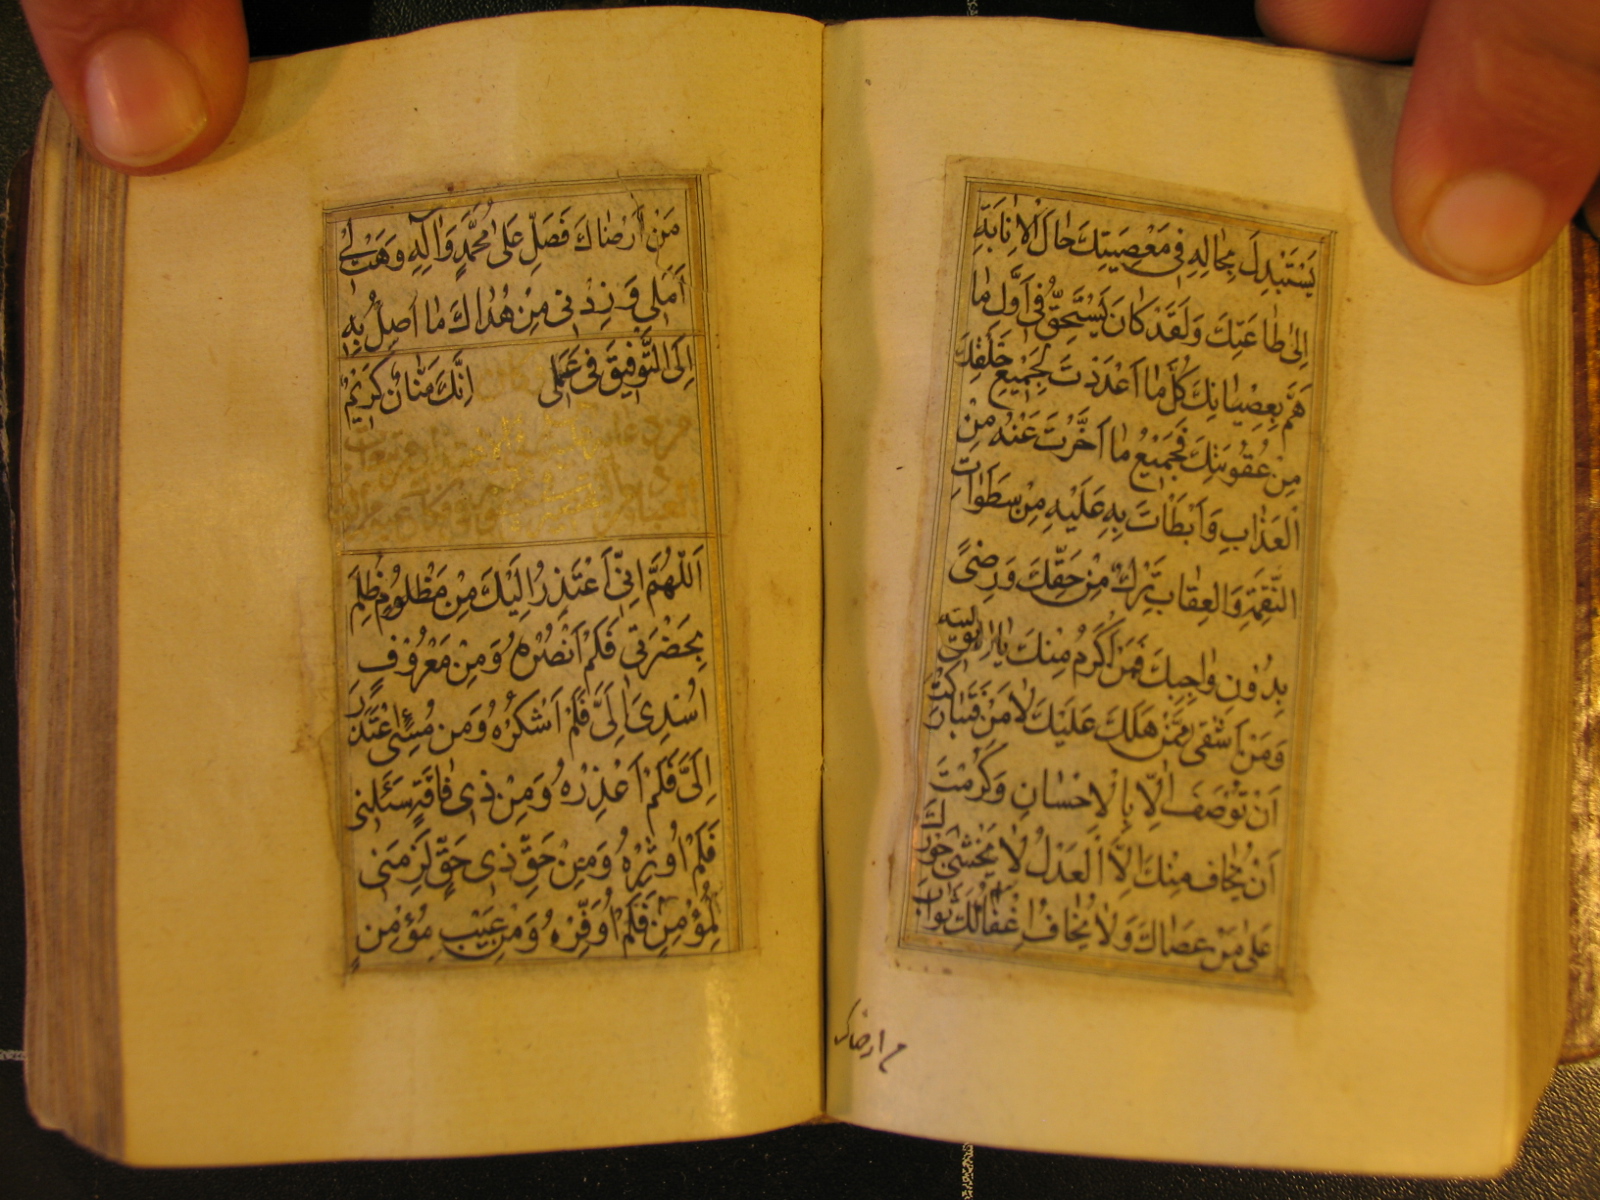 يَسْتَبْدِلَ بِحٰالِهِ فى مَعْصِيَتِكَ حٰالَ الْاِنٰابَةِ
اِلىٰ طٰاعَتِكَ وَلَقَدْ كٰانَ يَسْتَحِقُّ فى اَوَّلِ مٰا
هَمَّ بِعِصْيٰانِكَ كُلَّ مٰا اَعْدَدْتَ لِجَميعِ خَلْقِكَ
مِنْ عُقُوبَتِكَ فَجَميعُ مٰا اَخَّرْتَ عَنْهُ مِنَ
الْعَذٰابِ وَاَبْطَاْتَ بِهِ عَلَيْهِ مِنْ سَطَوٰاتِ
النَّقِمَةِ وَالْعِقٰابِ تَرْكٌ مِنْ حَقِّكَ وَرِضىً
بِدُونِ وٰاجِبِكَ فَمَنْ اَكْرَمُ مِنْكَ يٰا اِلٰهى
وَمَنْ اَشْقىٰ مِمَّنْ هَلَكَ عَلَيْكَ لٰا مَنْ فَتَبٰارَكْتَ
اَنْ تُوصَفَ اِلّٰا بِالْاِحْسٰانِ وَكَرُمْتَ
اَنْ يُخٰافَ مِنْكَ اِلَّا الْعَدْلُ لٰا يُخْشىٰ جَوْرُكَ
عَلىٰ مَنْ عَصٰاكَ وَلٰا يُخٰافُ اِغْفٰالُكَ ثَوٰابَ
من ارضاك
مَنْ اَرْضٰاكَ فَصَلِّ عَلىٰ مُحَمَّدٍ وَاٰلِهِ وَهَبْ لى
اَمَلى وَزِدْنى مِنْ هُدٰاكَ مٰا اَصِلُ بِهِ
اِلَى التَّوْفيقِ فى عَمَلى اِنَّكَ مَنّٰانٌ كَريمٌ
اَللّٰهُمَّ اِنّى اَعْتَذِرُ اِلَيْكَ مِنْ مَظْلُومٍ ظُلِمَ
بِحَضْرَتى فَلَمْ اَنْصُرْهُ وَمِنْ مَعْرُوفٍ
اُسْدِىَ اِلَىَّ فَلَمْ اَشْكُرْهُ وَمِنْ مُسيئٍ اعْتَذَرَ
اِلَىَّ فَلَمْ اَعْذِرْهُ وَمِنْ ذى فٰاقَةٍ سَئَلَنى
فَلَمْ اُوثِرْهُ وَمِنْ حَقِّ ذى حَقٍّ لَزِمَنى
لِمُؤْمِنٍ فَلَمْ اُوَفِّرْهُ وَمِنْ عَيْبِ مُؤْمِنٍ